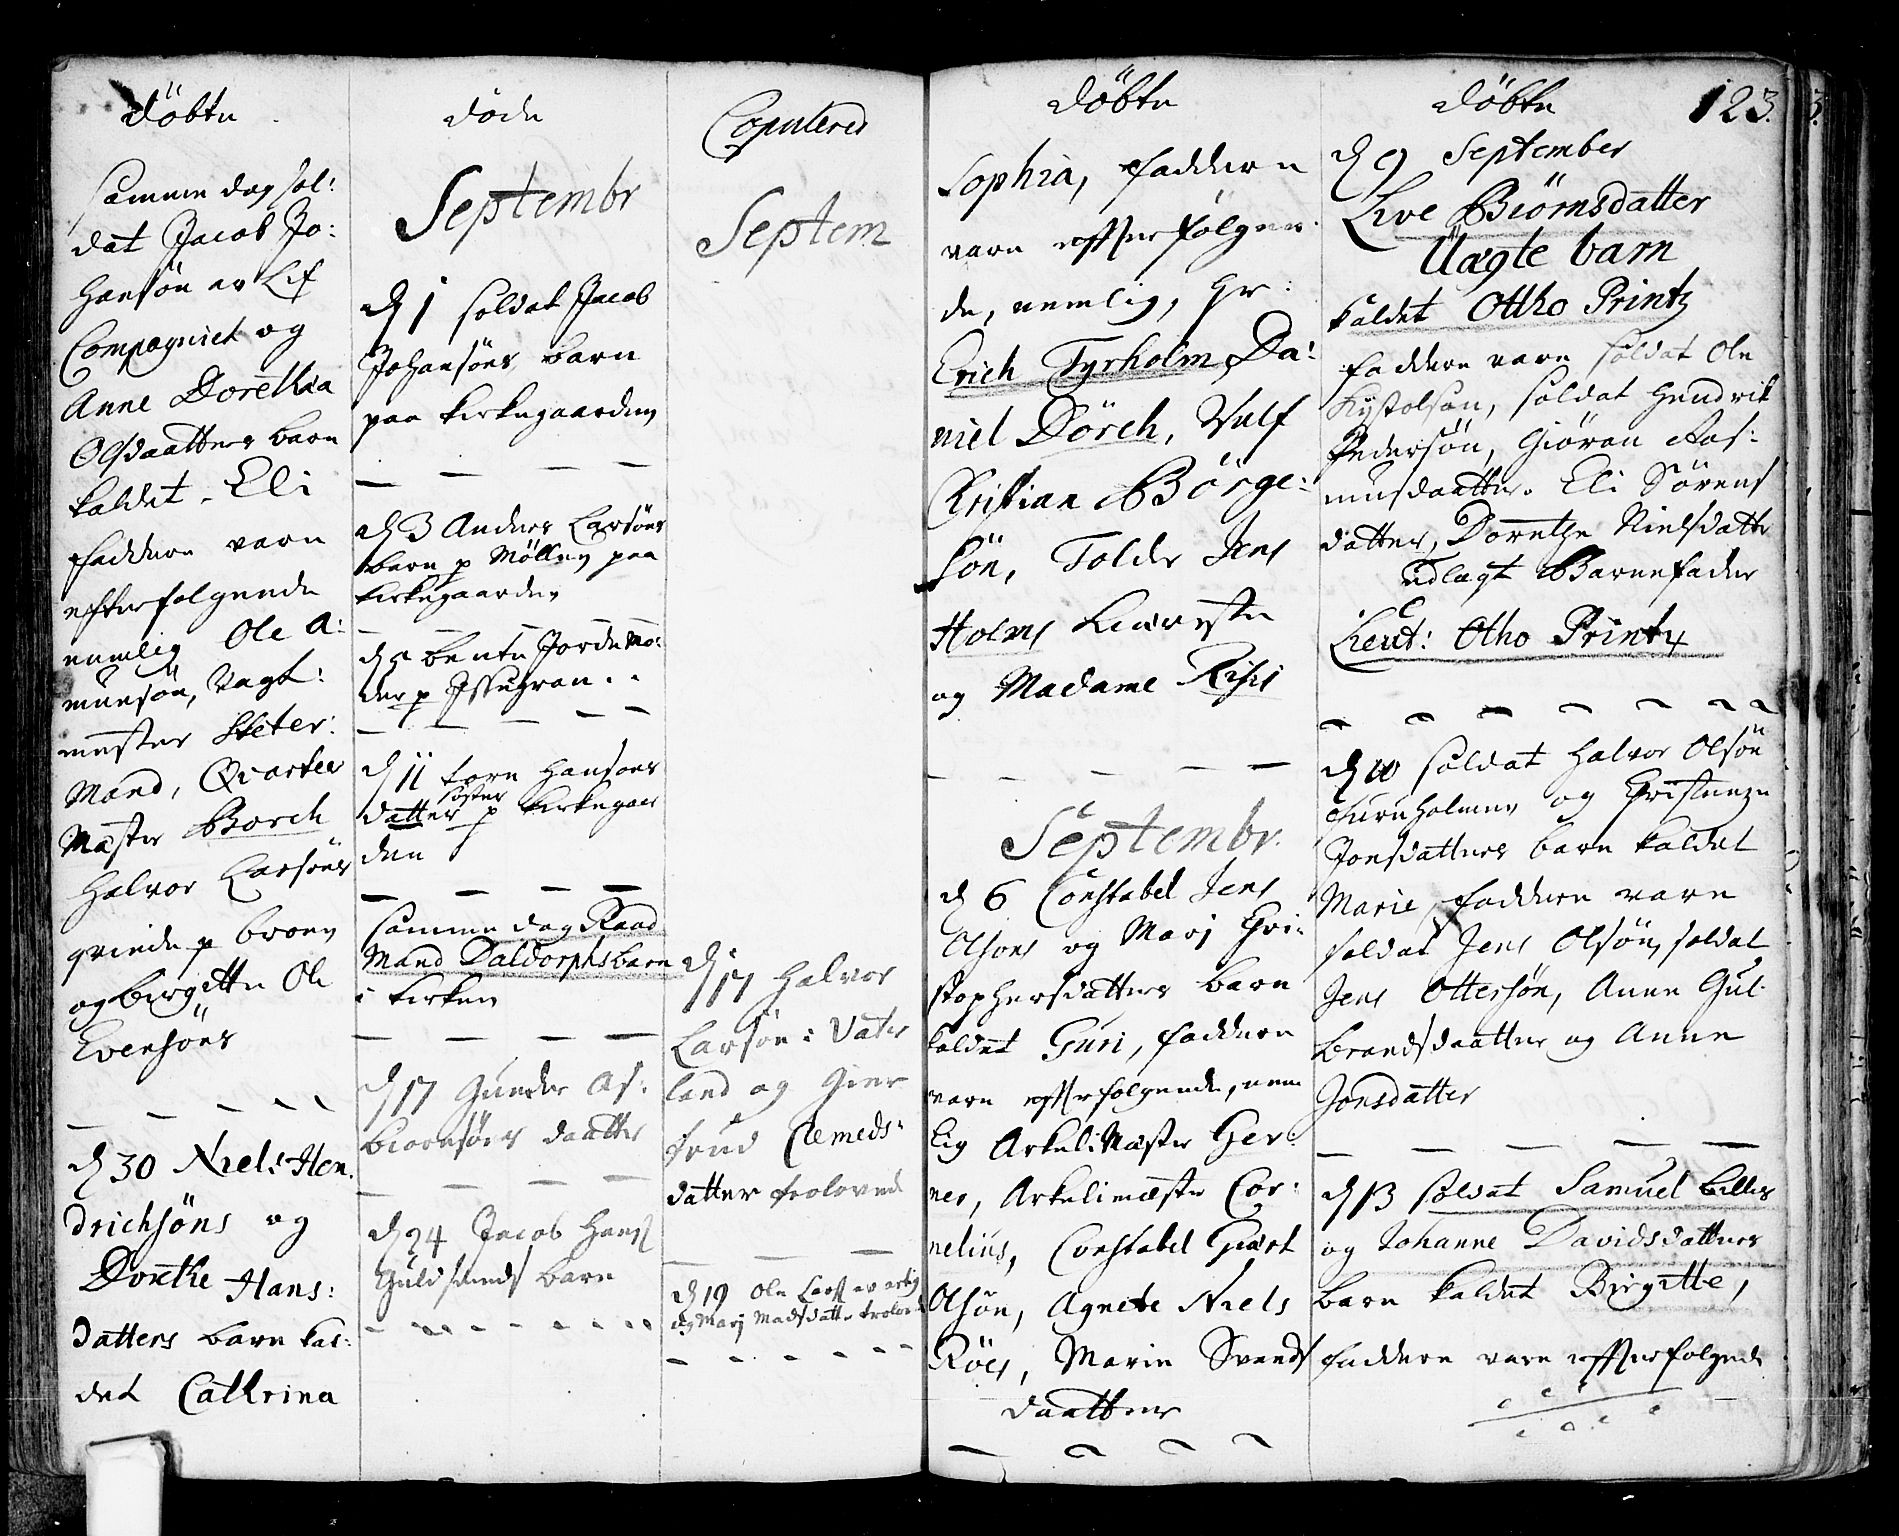 døbte
samme dag sol:
dat Jacob Jo:
hansøn av Lif
Compagniet og
Anne Dorethia
Olsdaatters barn
kaldet Eli
faddere vare
efterfølgende
nemlig Ole A:
munsøn, Vagt:
mester Sketer:
Mand, Qvarteer
Mæster Borch
Halvor Larsöns
qvinde p broen
og birgitte Ole
Evensöns
d 30 Niels Hen
drichsøns og
Dorethe Hans:
datters barn kal:
det Cathrina
døde
Septembr
d 1 soldat Jacob
Johansøns barn
paa kirkegaarden
d 3 Anders Larsøns
barn p Møllen paa
kirkegaarden
d 5 bente Jordemo:
der p
d 11 torn Hansøns
søster
datter p kirkegaar
den
samme dag Raad
Mand Daldorphs barn
i kirken
d 17 Gunder As:
biørnsøns daatter
d 24 Jacob Hans
Guldsmeds barn
Copulered
Septem
d 17 Halvor
Larsøn i Vater
land og Gier
trud Clemeds:
datter trolovede
d 19 Ole Lars
og Marj Madsdatter trolovede
døbte
Sophia, faddere
vare efterfølgen
de, nemlig, Hr:
Erich Tyrholm, Da:
niel Dörch, Vulf
Kristian Börge:
søn, Tolder Jens
Holms kiæreste
og Madame Risis
Septembr.
d 6 Constabel Jens
Olsøns og Marj Gri:
stophersdatters barn
kaldet Guri, faddere
vare efterfølgende, nem
lig Arkeli Mæster Ger:
ner, Arkelimæster Cor:
nelius, Constabel Giært
Olsøn, Agnete Niels
Röes, Marin Svends
daatter
døbte 123.
d 9 September
Live Biörnsdatter
Uægte barn
kaldet Ottho Printz
faddere vare soldat Ole
Kystolsøn, soldat Hendrik
Pedersøn, Giøran Ras:
musdaatter. Eli Sörens
datter, Doretze Nielsdatter
udlagt Barnefader
Lieut: Otho Printz
d 10 soldat Halvor Olsøn
furuholmen og Christenze
Jonsdatters barn kaldet
Marie, faddere vare
soldat Jens Olsøn, soldat
Jens Ottersøn, Anne Gul
brandsdaatter og Anne
Jonsdatter
d 13 soldat Samuel billes
og Johanne Davidsdatters
barn kaldet Birgitte,
faddere vare efterfølgende